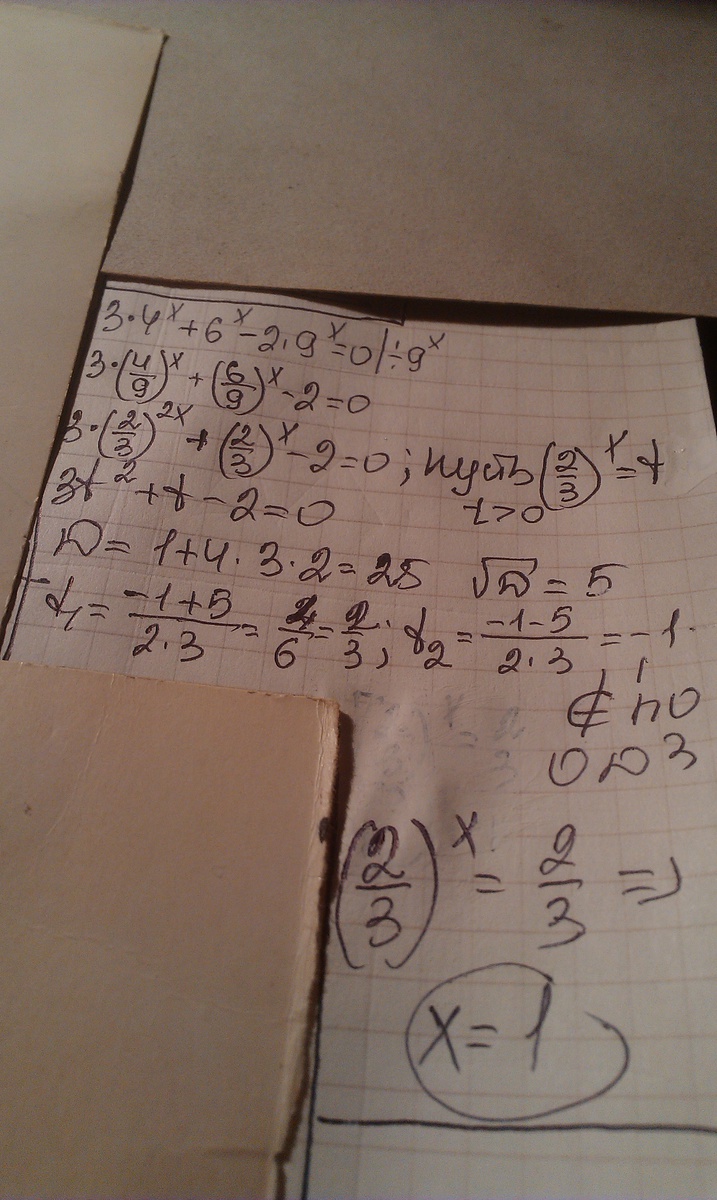 3·4^x + 6^x - 2·9^x = 0 | ÷9^x
3·(4/9)^x + (6/9)^x - 2 = 0
3·(2/3)^2x + (2/3)^x - 2 = 0; пусть (2/3)^x = t
t>0
3t^2 + t - 2 = 0
D = 1+4·3·2 = 25 √D = 5
t₁ = (-1+5)/(2·3) = 4/6 = 2/3; t₂ = (-1-5)/(2·3) = -1
∉ по
ОДЗ
(2/3)^x = 2/3 =>
x = 1